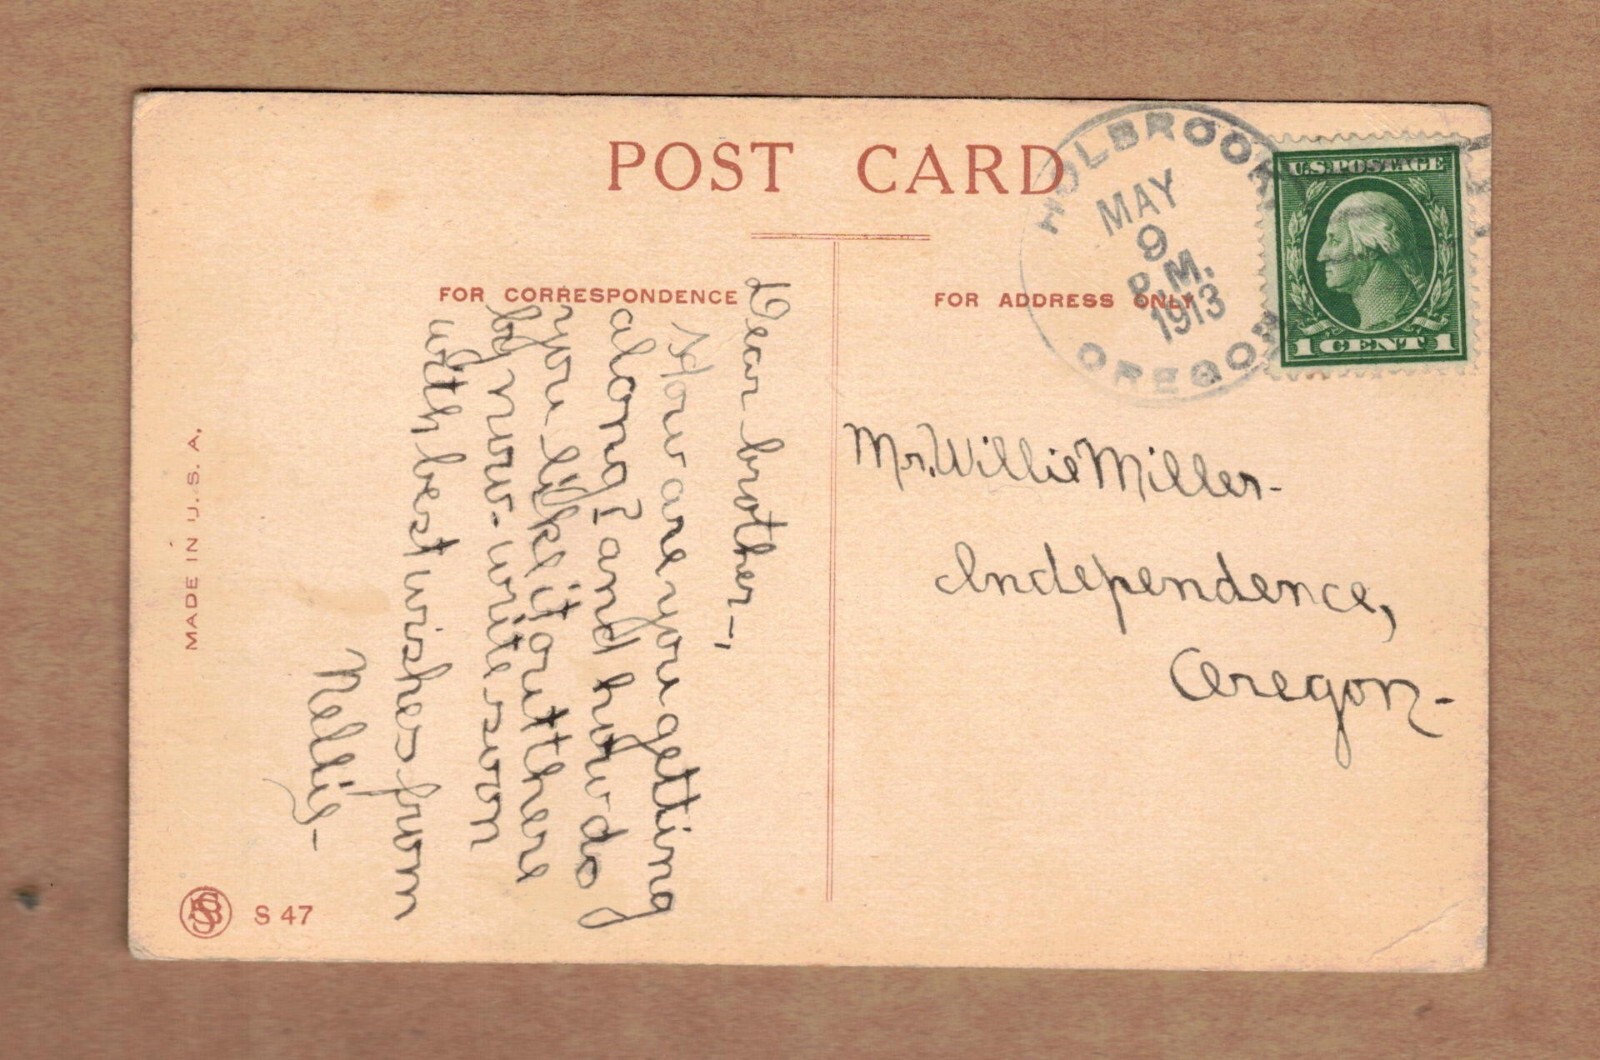 POST CARD
HOLBROOK
MAY
9
P.M.
1913
OREGON
U.S.POSTAGE
1 CENT 1
FOR CORRESPONDENCE
FOR ADDRESS ONLY
Dear brother-,
How are you getting
along? and how do
you like it out there
by now. write soon
with best wishes from
Nellie-
Mr. Willie Miller-
Independence,
Oregon-
MADE IN U.S.A.
S 47